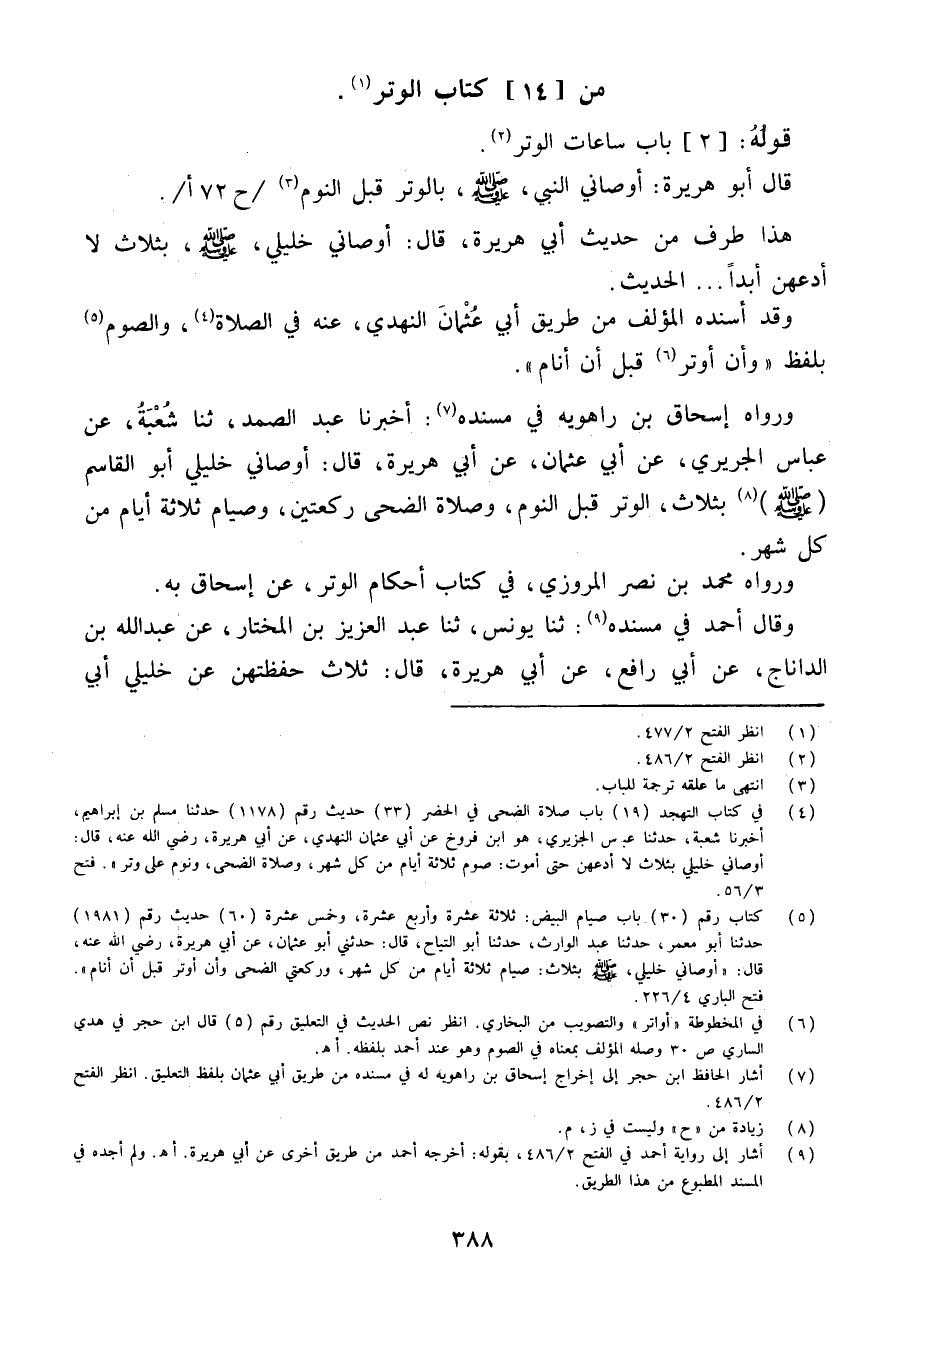 من [ ١٤ ] كتاب الوتر(١) .
قولُهُ: [ ٢ ] باب ساعات الوتر(٢).
قال أبو هريرة: أوصاني النبي، ﷺ، بالوتر قبل النوم(٣) /ح ٧٢ أ/ .
هذا طرف من حديث أبي هريرة، قال: أوصاني خليلي، ﷺ، بثلاث لا
أدعهن أبداً ... الحديث.
وقد أسنده المؤلف من طريق أبي عُثْمانَ النهدي، عنه في الصلاة(٤)، والصوم(٥)
بلفظ «وأن أوتر(٦) قبل أن أنام».
ورواه إسحاق بن راهويه في مسنده(٧): أخبرنا عبد الصمد، ثنا شُعْبَةُ، عن
عباس الجريري، عن أبي عثمان، عن أبي هريرة، قال: أوصاني خليلي أبو القاسم
(ﷺ)(٨) بثلاث، الوتر قبل النوم، وصلاة الضحى ركعتين، وصيام ثلاثة أيام من
كل شهر.
ورواه محمد بن نصر المروزي، في كتاب أحكام الوتر، عن إسحاق به.
وقال أحمد في مسنده(٩): ثنا يونس، ثنا عبد العزيز بن المختار، عن عبدالله بن
الداناج، عن أبي رافع، عن أبي هريرة، قال: ثلاث حفظتهن عن خليلي أبي
(١) انظر الفتح ٤٧٧/٢.
(٢) انظر الفتح ٤٨٦/٢.
(٣) انتهى ما علقه ترجمة للباب.
(٤) في كتاب التهجد (١٩) باب صلاة الضحى في الحضر (٣٣) حديث رقم (١١٧٨) حدثنا مسلم بن إبراهيم،
أخبرنا شعبة، حدثنا عباس الجزيري، هو ابن فروخ عن أبي عثمان النهدي، عن أبي هريرة، رضي الله عنه، قال:
أوصاني خليلي بثلاث لا أدعهن حتى أموت: صوم ثلاثة أيام من كل شهر، وصلاة الضحى، ونوم على وتر». فتح
٥٦/٣.
(٥) كتاب رقم (٣٠) باب صيام البيض: ثلاثة عشرة وأربع عشرة، وخمس عشرة (٦٠) حديث رقم (١٩٨١)
حدثنا أبو معمر، حدثنا عبد الوارث، حدثنا أبو التياح، قال: حدثني أبو عثمان، عن أبي هريرة، رضي الله عنه،
قال: «أوصاني خليلي، ﷺ بثلاث: صيام ثلاثة أيام من كل شهر، وركعتي الضحى وأن أوتر قبل أن أنام».
فتح الباري ٢٢٦/٤.
(٦) في المخطوطة «أواتر» والتصويب من البخاري. انظر نص الحديث في التعليق رقم (٥) قال ابن حجر في هدي
الساري ص ٣٠ وصله المؤلف بمعناه في الصوم وهو عند أحمد بلفظه. أ هـ.
(٧) أشار الحافظ ابن حجر إلى إخراج إسحاق بن راهويه له في مسنده من طريق أبي عثمان بلفظ التعليق. انظر الفتح
٤٨٦/٢.
(٨) زيادة من «ح» وليست في ز، م.
(٩) أشار إلى رواية أحمد في الفتح ٤٨٦/٢، بقوله: أخرجه أحمد من طريق أخرى عن أبي هريرة. أ هـ. ولم أجده في
المسند المطبوع من هذا الطريق.
٣٨٨